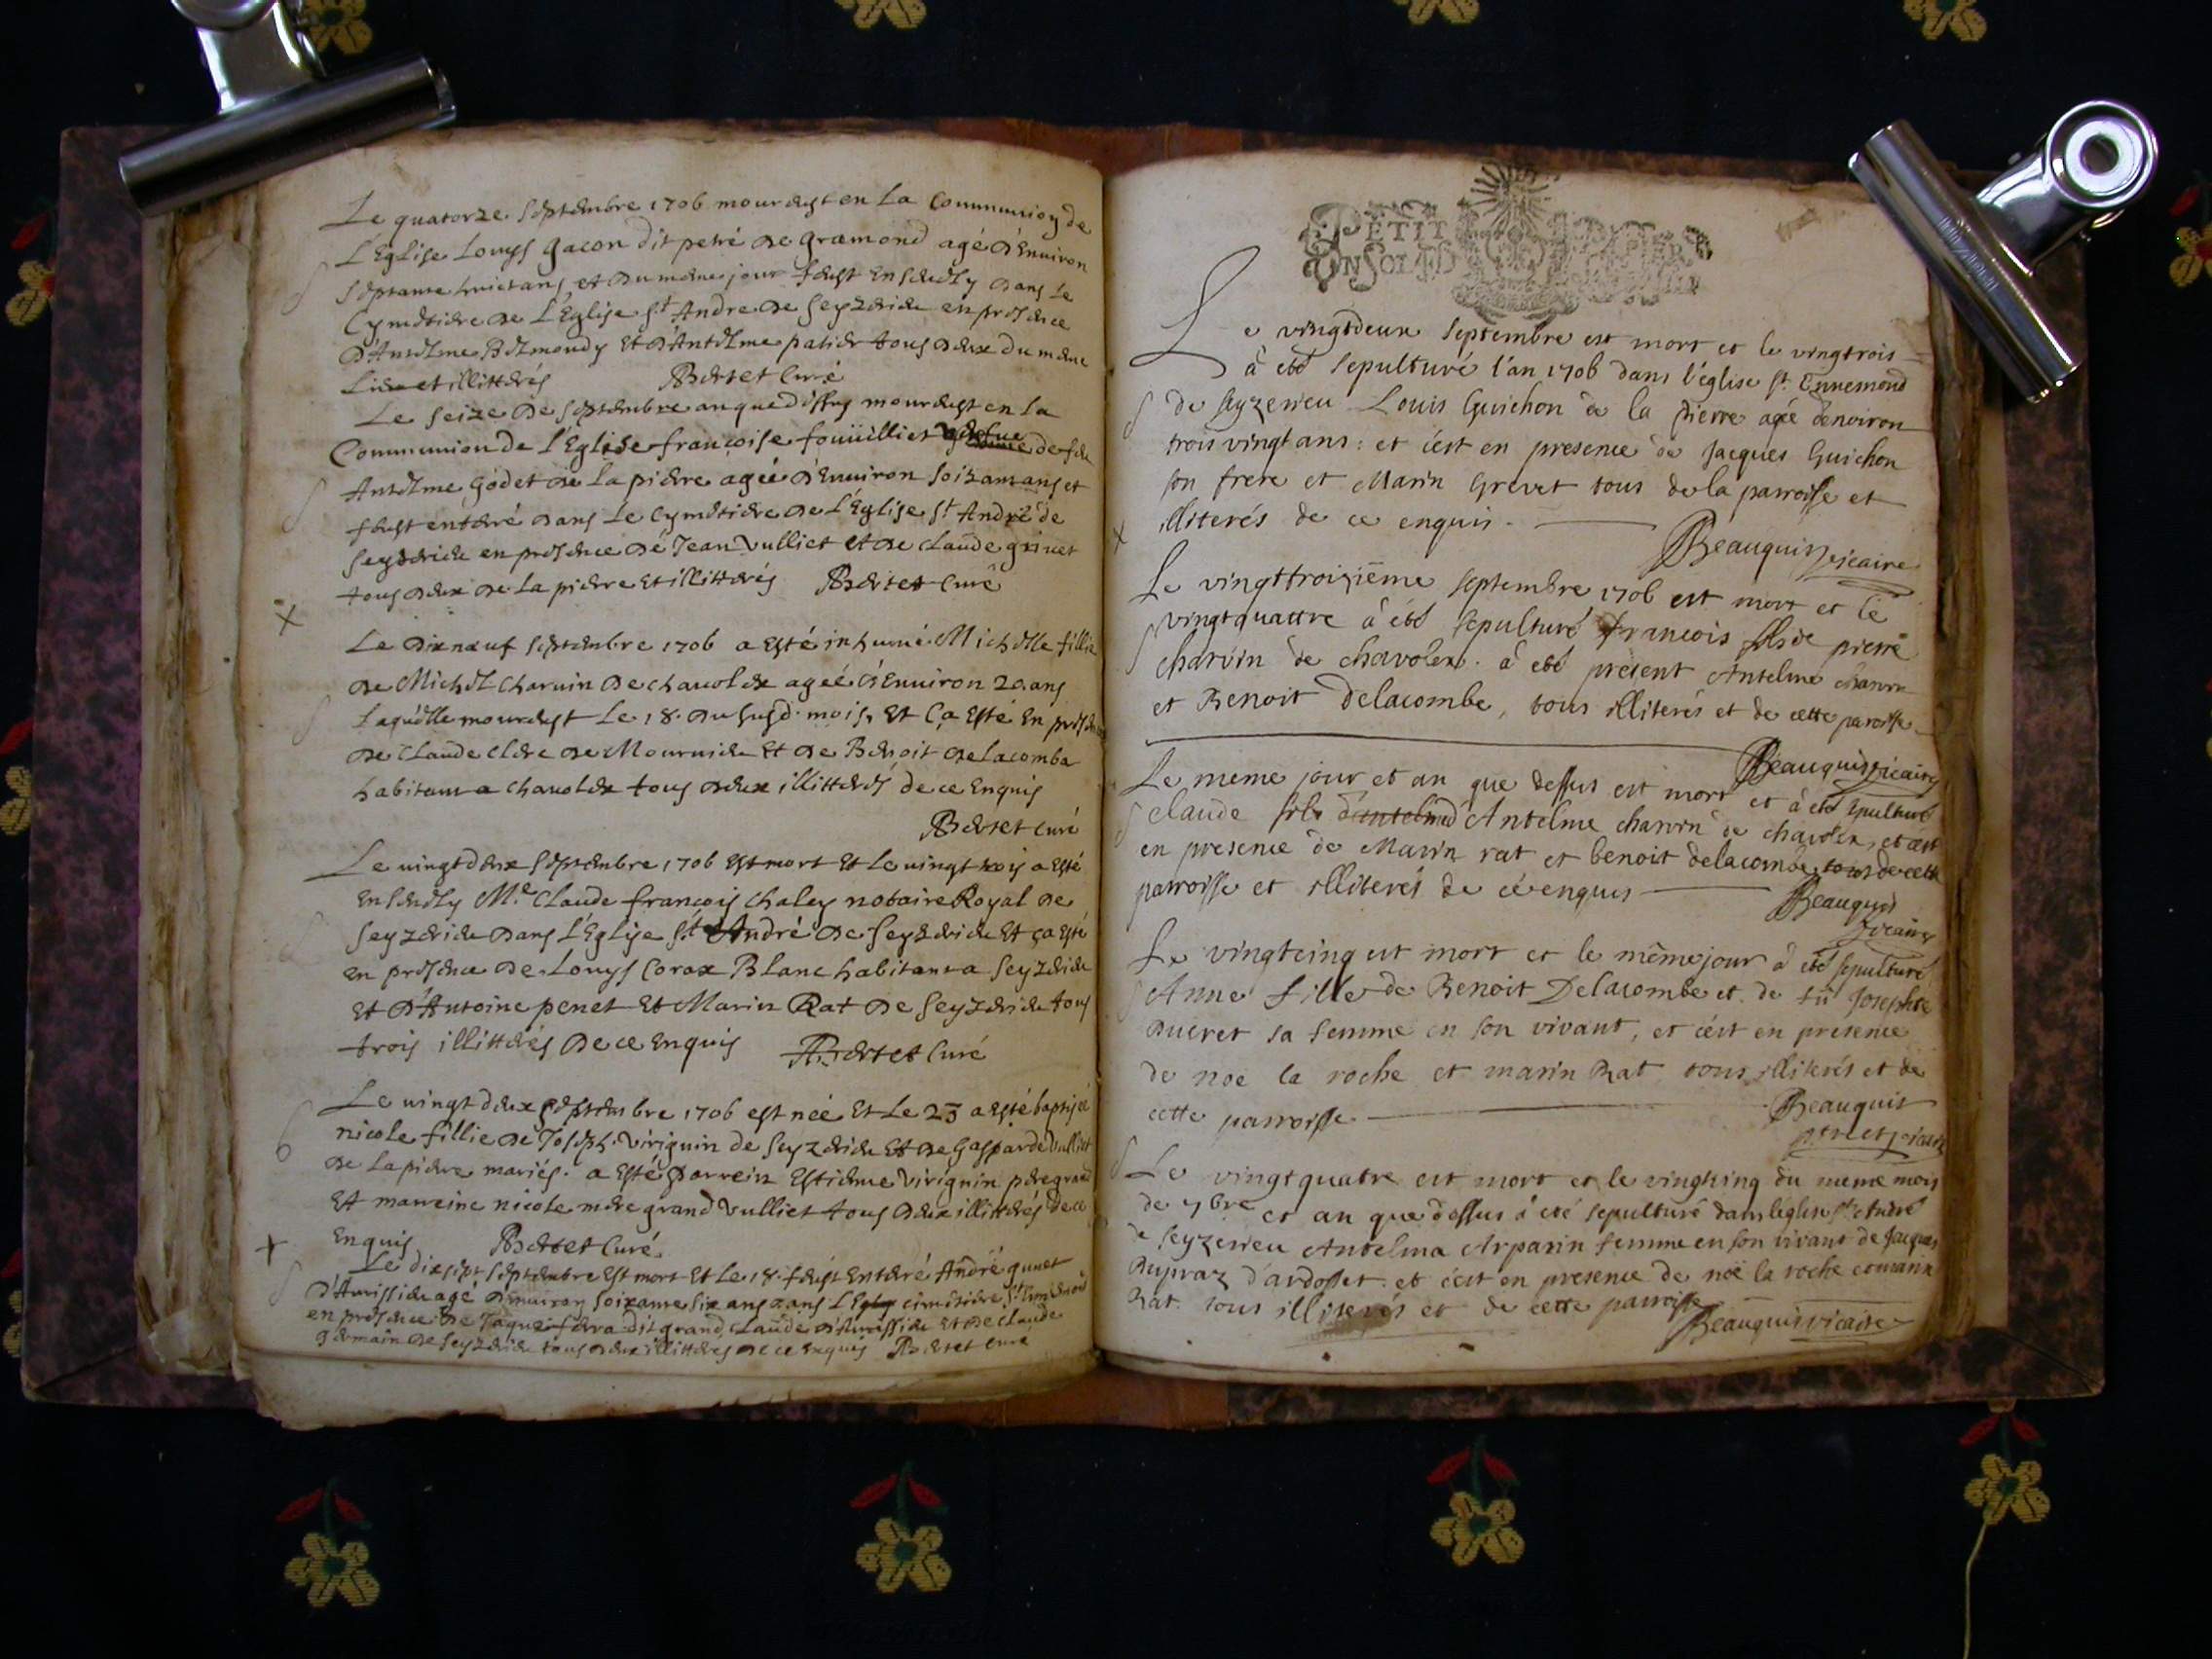 Le quatorze septembre 1706 mourust en La Communion de
L'Eglise Louys gacon dit petré de gramond agé d'Enuiron
septante huict ans, et du mesme jour fust Enseuely dans Le
Cymetiere de L'Eglise St Andre de Seyzerieu en presence
d'Antelme Belmondy Et d'Antelme patier tous deux du mesme
Lieu et illitterés Bertet Curé
Le seize de septembre an que dessus mourust en La
Communion de L'Eglise françoise fouïilliet de feu
Antelme godet de La pierre agée d'Enuiron soixante ans et
fust enterré dans Le Cymetiere de L'Eglise St André de
Seyzerieu en presence de Jean Vulliet et de Claude griuet
tous deux de La pierre Et illitterés Bertet Curé
Le dixneuf septembre 1706 a Esté inhumé Michelle fillie
de Michel Charuin de chauolex agée d'Enuiron 20 ans
Laquelle mourust Le 18. du susd. mois, Et ça Esté En presence
de Claude Clere de Mournieu Et de Benoit delacombe
habitants a Chauolex tous deux illitterés de ce Enquis
Bertet Curé
Le uingt deux septembre 1706 Est mort Et Le uingt trois a Esté
Enseuely Me. Claude françois Chaley notaire Royal de
Seyzerieu dans L'Eglise St André de Seyzerieu Et ça Esté
en presence de Louys Corax Blanc habitant a Seyzerieu
Et d'Antoine penet Et Marin Rat de Seyzerieu tous
trois illitterés de ce Enquis Bertet Curé
Le uingt deux septembre 1706 est née Et Le 23 a Esté baptisée
nicole fillie de Joseph Viriguin de Seyzerieu Et de Gasparde Vulliet
de La pierre mariés. a Esté parrein Estienne Viriguin pere grand
Et marreine nicole mere grand Vulliet tous deux illitterés de ce
Enquis Bertet Curé.
Le dixsept septembre Est mort Et Le 18. fust Enterré André
d'Auissieu agé d'enuiron soixante six ans dans L' cimitiere St
en presence de Jaque fera dit grand Claude d'Auissieu Et de Claude
germain de Seyzerieu tous deux illitterés de ce Enquis Bertet Curé
PETIT PAPIER
UN SOL
Le vingtdeux septembre est mort et le vingtrois
à eté sepulturé l'an 1706 dans l'église St. Ennemond
de seyzerieu Louis Guichon de la pierre agé denviron
trois vingt ans: et c'est en presence de Jacques Guichon
son frere et Marin Grevet tous de la parroisse et
illiterés de ce enquis.
Beauquis vicaire
Le vingttroizième septembre 1706 est mort et le
vingtquattre à été sepulturé françois fils de pierre
charvin de chavolex. à eté present Antelme charvin
et Benoit Delacombe, tous illiterés et de cette paroisse.
Beauquis vicaire
Le meme jour et an que dessus est mort et à eté sepulturé
claude fils d'antelme d'Antelme charvin de chavolex, et c'est
en presence de Marin rat et benoit delacombe tous de cette
parroisse et illiterés de ce enquis
Beauquis
vicaire
Le vingtcinq est mort et le même jour à eté sepulturé
Anne fille de Benoit Delacombe et de fü Josephte
Ducret sa femme en son vivant, et c'est en presence
de noe la roche et marin Rat tous illiterés et de
cette parroisse
Beauquis
ptre et vicaire
Le vingtquatre est mort et le vingtcinq du meme mois
de 7bre et an que dessus à eté sepulturé dans léglise St André
de seyzerieu Antelma Arparin femme en son vivant de Jacques
Dupraz d'ardosset. et c'est en presence de noe la roche
Rat. tous illiterés et de cette parroisse
Beauquis vicaire